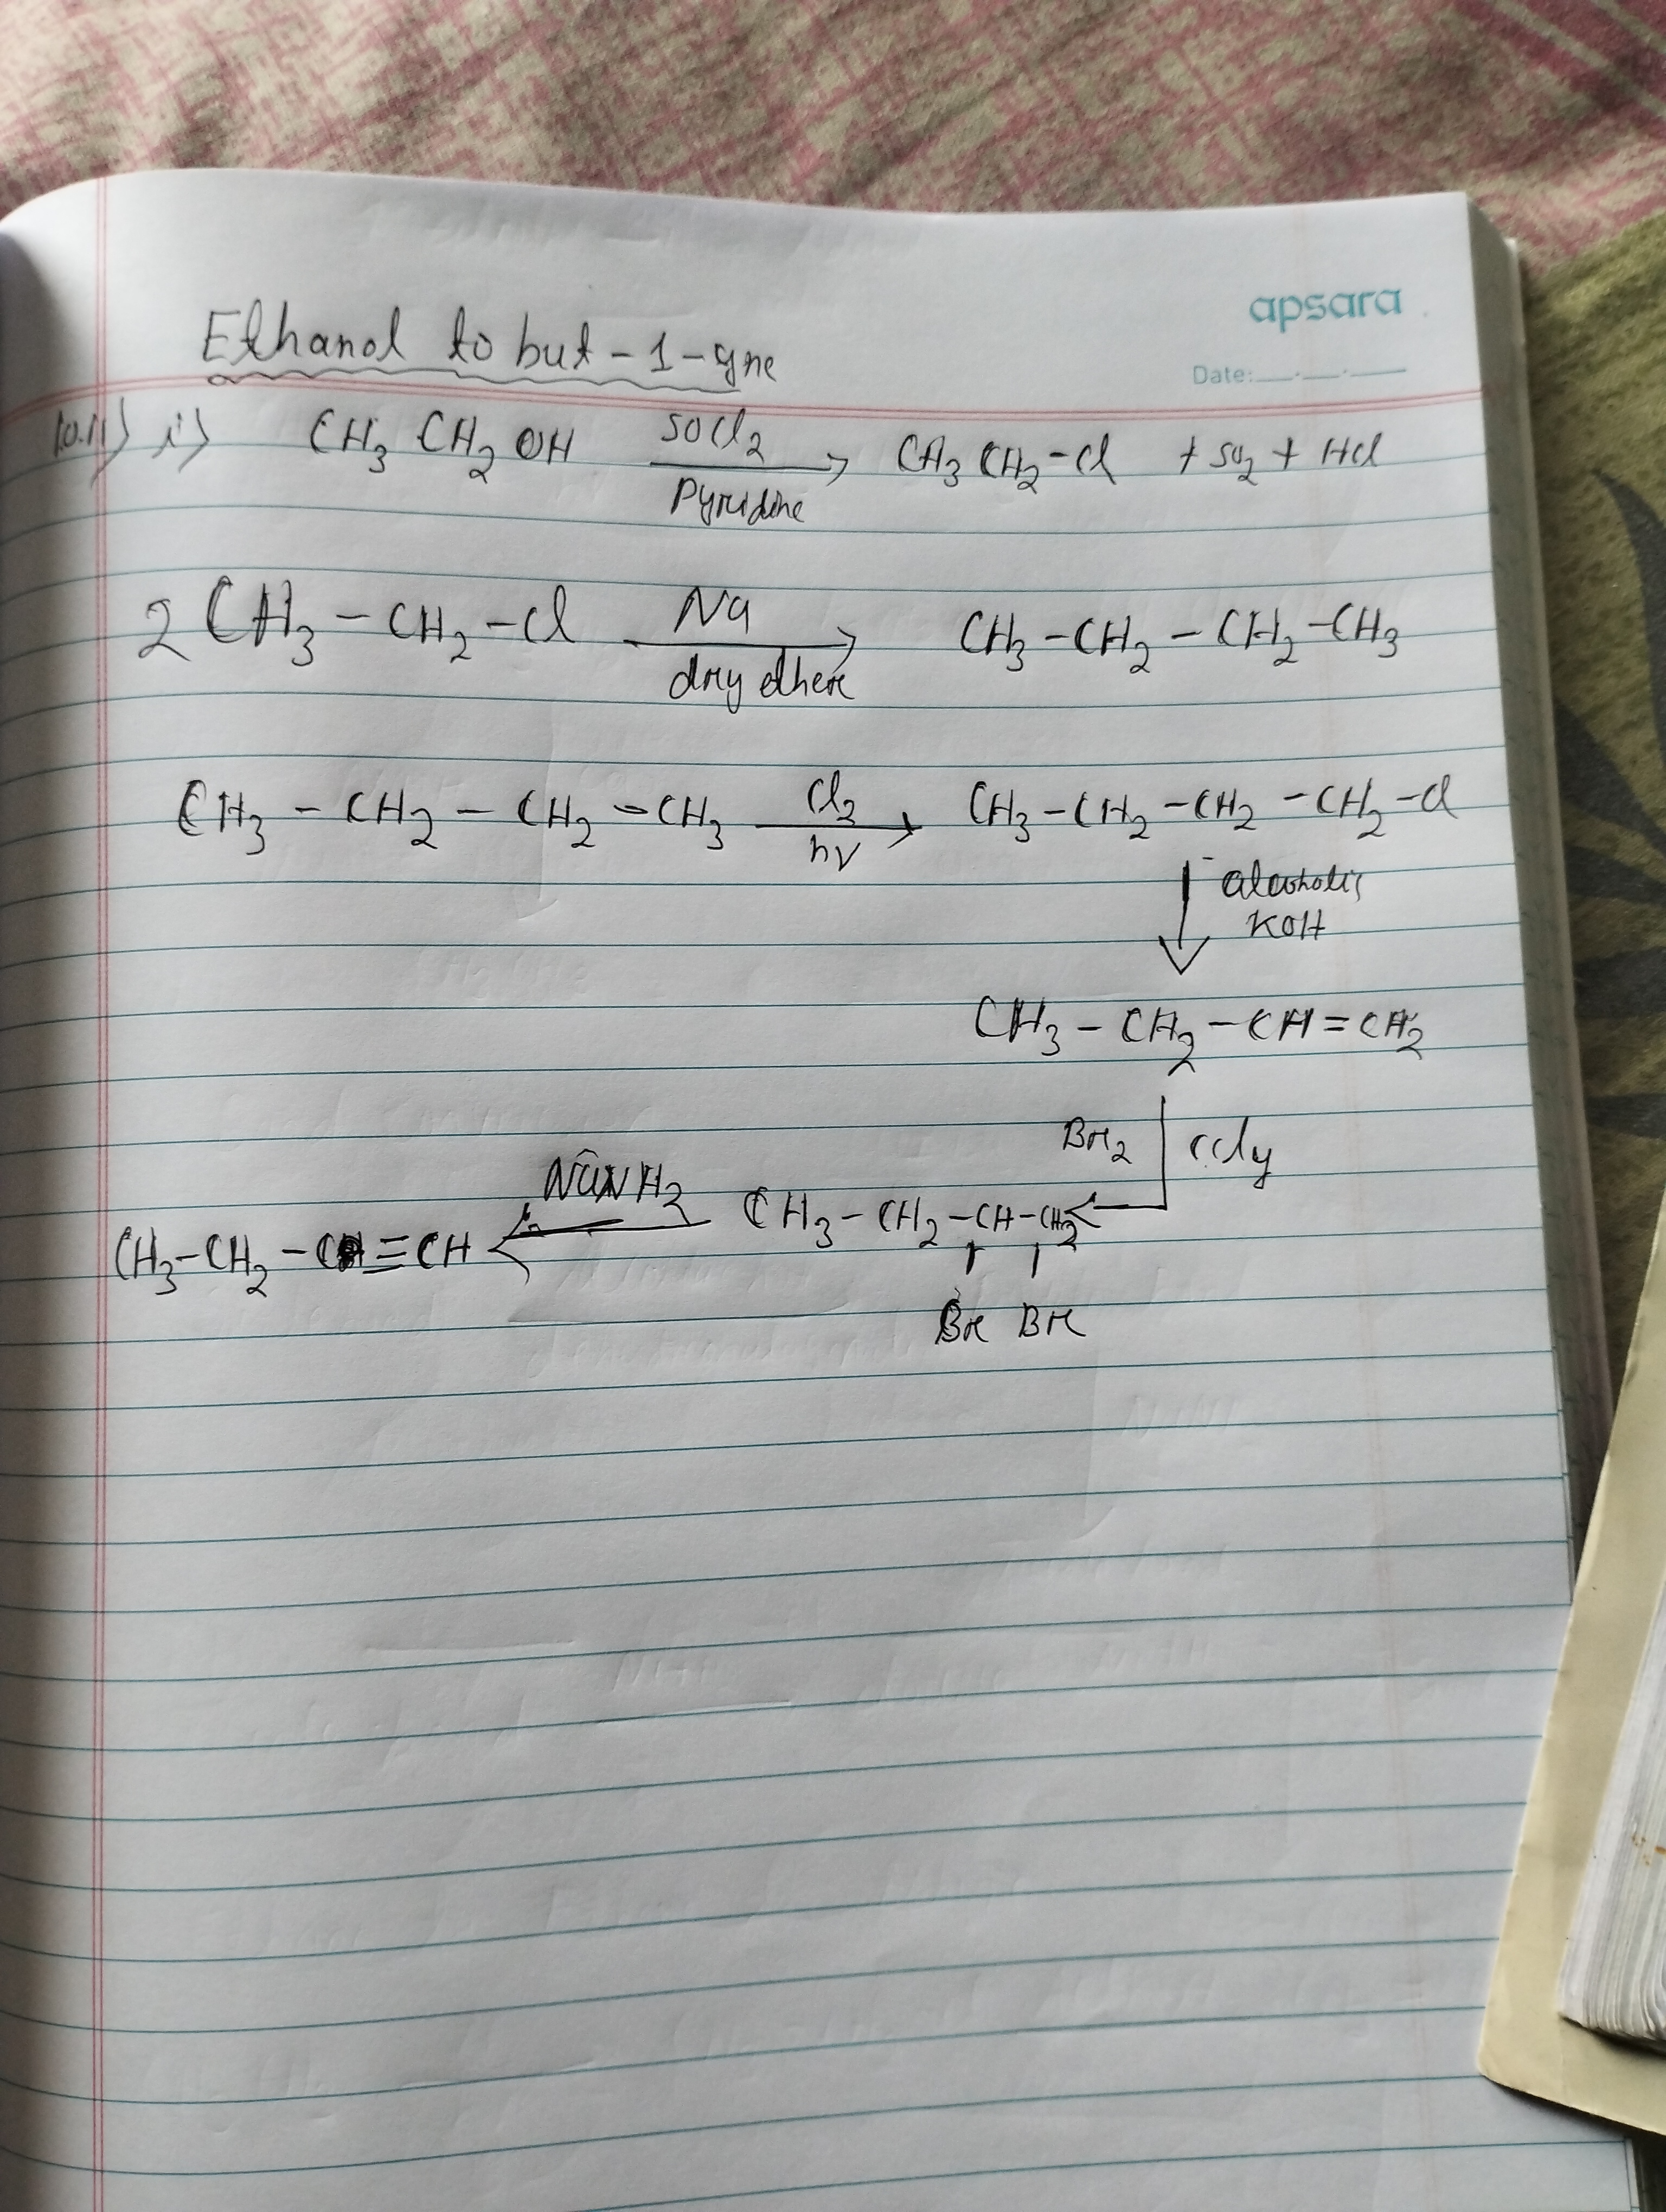 apsara
Date:
Ethanol to but-1-yne
10.11) i) CH3 CH2 OH SOCl2 Pyridine → CH3 CH2-Cl + SO2 + HCl
2 CH3-CH2-Cl Na dry ether → CH3-CH2-CH2-CH3
CH3-CH2-CH2-CH3 Cl2 hv → CH3-CH2-CH2-CH2-Cl
↓ alcoholic
KOH
CH3-CH2-CH=CH2
Br2 CCl4
CH3-CH2-C≡CH ← NaNH2 CH3-CH2-CH-CH2 ←
Br Br